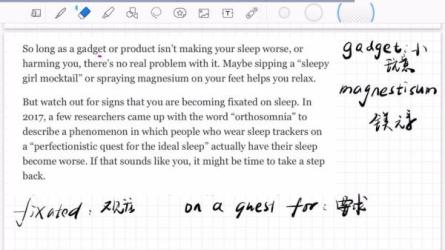 So long as a gadget or product isn't making your sleep worse, or
harming you, there's no real problem with it. Maybe sipping a "sleepy
girl mocktail" or spraying magnesium on your feet helps you relax.
But watch out for signs that you are becoming fixated on sleep. In
2017, a few researchers came up with the word "orthosomnia" to
describe a phenomenon in which people who wear sleep trackers on
a "perfectionistic quest for the ideal sleep" actually have their sleep
become worse. If that sounds like you, it might be time to take a step
back.
gadget: 小
玩意
magnestisum
镁元素
fixated: 观注
on a quest for: 要求